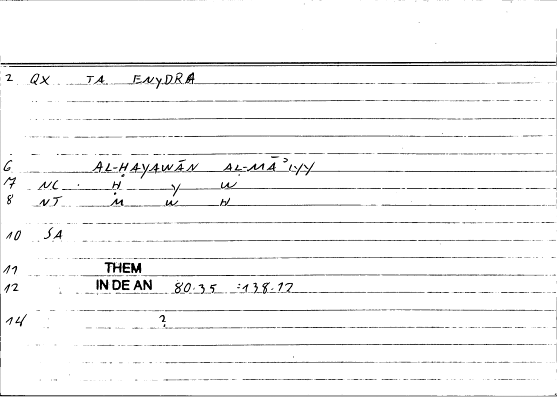 2 QX TA ENyDRA
6 AL-ḤAYAWĀN AL-MĀʾIYY
7 NC Ḥ y W
8 NT M W H
10 SA
11 THEM
12 IN DE AN 80.35 :138.17
14 ?